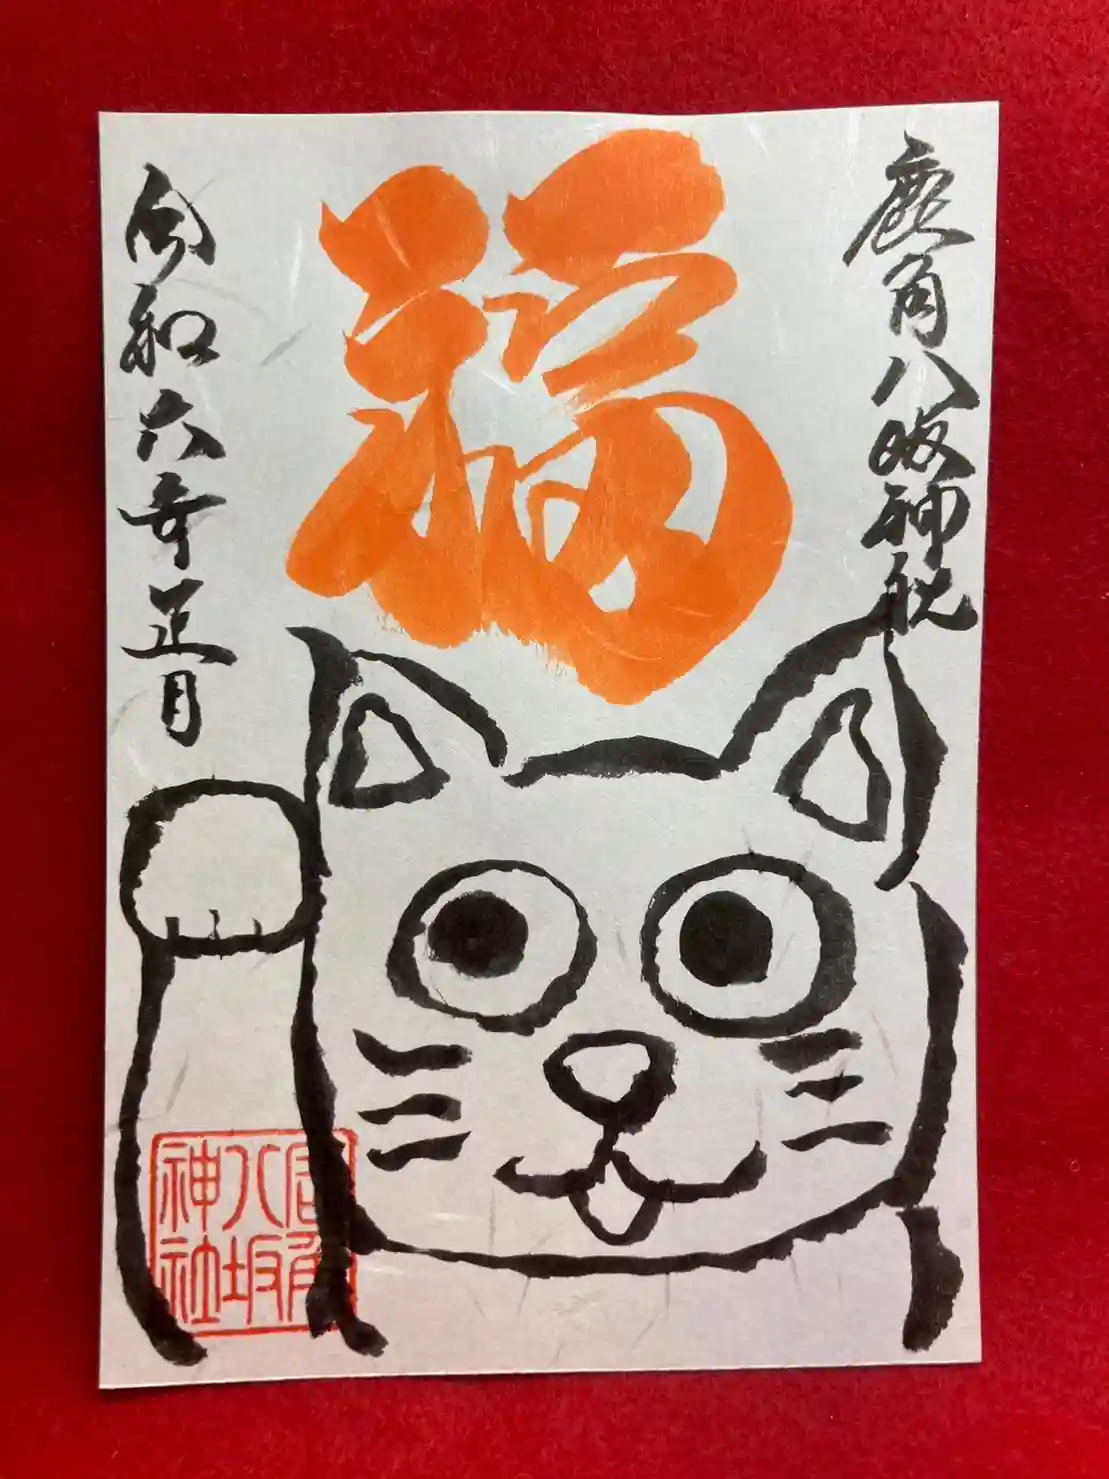 鹿角八坂神社
福
令和六年正月
鹿角
八坂
神社